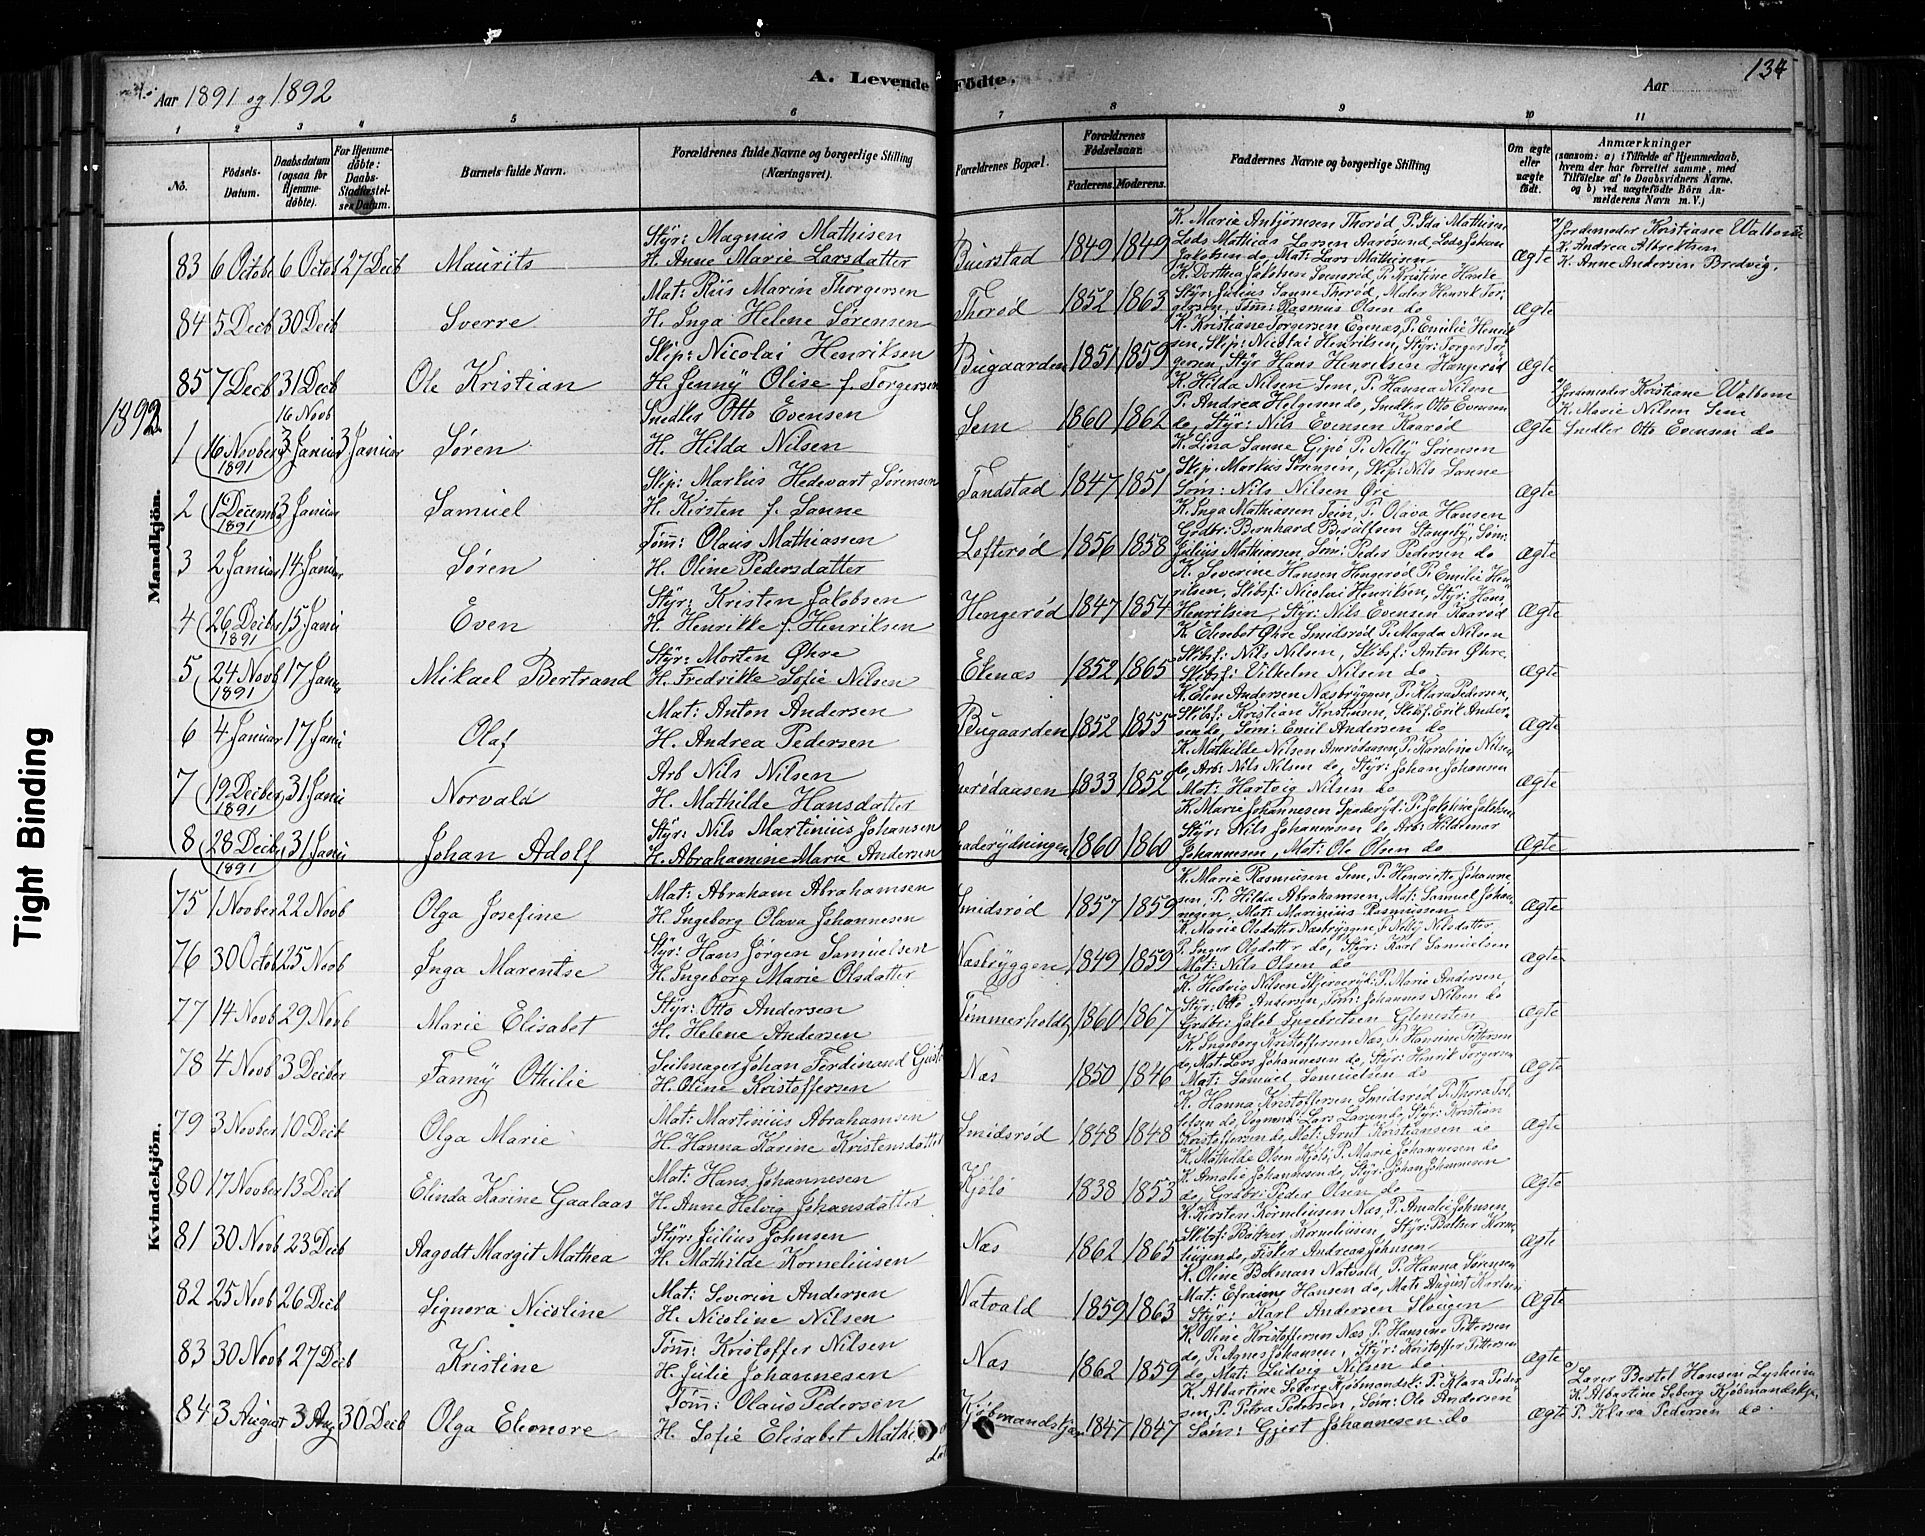 Aar 1891 og 1892
A. Levende Födte.
Aar
134
1 2 3 4 5 6 7 8 9 10 11
No.
Födsels-Datum.
Daabsdatum (ogsaa for Hjemmedöbte).
For Hjemmedöbte: Daabs-Stadfæstelses Datum.
Barnets fulde Navn.
Forældrenes fulde Navne og borgerlige Stilling (Næringsvei).
Forældrenes Bopæl.
Forældrenes Födselsaar.
Faderens. Moderens.
Faddernes Navne og borgerlige Stilling
Om ægte eller uægte födt.
Anmærkninger
(saasom: a) i Tilfælde af Hjemmedaab, hvem der har forrettet samme, med Tilföielse af to Daabsvidners Navne, og b) ved uægtefödte Börn Anmelderens Navn m. V.)
Mandkjön.
83 6 Octobr 6 Octob 27 Decb Maurits
Styr: Magnus Mathisen
H. Anne Marie Larsdatter
Buerstad 1849 1849
K. Marie Anbjørnsen Thorød, P. Ida Mathisen
Lods Mathias Larsen Aarøsund, Lods Johan
Jakobsen do, Mat: Lars Mathisen
Ægte
Jordemoder Kristiane Walbom
K. Andrea Albrektsen
K. Anne Andersen Bredvig.
84 5 Decb 30 Decb Sverre
Mat: Riis Marin Thorgersen
H. Inga Helene Sørensen
Thorød 1852 1863
K. Dorthea Jakobsen Svensrød, P. Kristine Hasle
Styr: Julius Sanne Thorød, Maler Henrik Torgersen, Tøm: Rasmus Olsen do
Ægte
85 7 Decb 31 Decb Ole Kristian
Skip: Nicolai Henriksen
H. Jenny Olise f. Torgersen
Bugaarden 1851 1859
K. Kristiane Torgersen Egenæs, P. Emilie Henriksen, Skip: Nicolai Henriksen, Styr: Torger Torgersen, Styr Hans Henriksen Hængerød
Ægte
1892.
1 16 Novber 1891 16 Novb 3 Januar 3 Januar Søren
Snedker Otto Evensen
H. Hilda Nilsen
Sem 1860 1862
K. Hilda Nilsen Sem, P. Hanna Nilsen
P. Andrea Helgesen do, Snedker Otto Evensen
do, Styr: Nils Evensen Kaarød
Ægte
Jordemoder Kristiane Walbom
K. Marie Nilsen Sem
Snedker Otto Evensen do
2 1 Decemb 1891 3 Januar Samuel
Skip: Markus Hedevart Sørensen
H. Kirsten f. Sanne
Tandstad 1847 1851
K. Lina Sanne Gipø P. Nelly Sørensen
Skip: Markus Sørensen, Skip: Nils Sanne
Søm: Nils Nilsen Øre
Ægte
3 2 Januar 14 Januar Søren
Tøm: Olaus Mathiassen
H. Oline Pedersdatter
Lofterød 1856 1858
K. Inga Mathiassen Tein, P. Olava Hansen
Grdbr: Bernhard Stangeby, Søm:
Julius Mathiassen, Søm: Peder Pedersen do
Ægte
4 26 Decbr 1891 15 Janu Even
Styr: Kristen Jakobsen
H. Henrikke f. Henriksen
Hengerød 1847 1854
K. Severine Hansen Hengerød P. Emilie Henriksen, Skibsf: Nicolai Henriksen, Styr: Hans
Henriksen, Styr: Nils Evensen Kaarød
Ægte
5 24 Novb 1891 17 Janu Mikael Bertrand
Styr: Morten Øhre
H. Fredrikke Sofie Nilsen
Ekenæs 1852 1865
K. Elisebet Øhre Smidsrød P. Magda Nilsen
Skibsf: Nils Nilsen, Skibsf: Anton Øhre,
Skibsf: Vilhelm Nilsen do
Ægte
6 4 Januar 17 Janu Olaf
Mat: Anton Andersen
H. Andrea Pedersen
Bugaarden 1852 1855
K. Elen Andersen Næsbryggen, P. Klara Pedersen,
Skibsf: Kristian Kristiansen, Skibsf. Erik Andersen do, Søm: Emil Andersen do
Ægte
7 19 Decber 1891 31 Janu Norvald
Arb Nils Nilsen
H. Mathilde Hansdatter
1833 1852
K. Mathilde Nilsen P. Karoline Nilsen
do, Arb: Nils Nilsen do, Styr: Johan Johansen
Mat: Hartvig Nilsen do
Ægte
8 28 Decbr 1891 31 Janu Johan Adolf
Styr: Nils Martinius Johansen
H. Abrahamine Marie Andersen
1860 1860
K. Marie Johannesen P. Jakobine Jakobsen
Styr: Nils Johannesen do, Arb: Hildemar
Johannesen, Mat: Ole Olsen do
Ægte
Kvindekjön.
75 1 Novber 22 Novb Olga Josefine
Mat: Abraham Abrahamsen
H. Ingeborg Olava Johannesen
Smidsrød 1857 1859
K. Marie Rasmussen Sem, P. Henriette Johannesen, P. Hilda Abrahamsen, Mat: Samuel Johannesen, Mat: Marinius Rasmussen
Ægte
76 30 Octob 25 Novb Inga Marentse
Styr: Hans Jørgen Samuelsen
H. Ingeborg Marie Olsdatter
Næsbryggen 1849 1859
K. Marie Olsdatter Næsbryggen, P. Nelly Nilsdatter,
P. Inger Olsdatter do, Styr: Karl Samuelsen
Mat: Nils Olsen do
Ægte
77 14 Novb 29 Novb Marie Elisabet
Styr: Otto Andersen
H. Helene Andersen
Tømmerholdt 1860 1867
K. Hedvig Nilsen P. Marie Andersen,
Styr: Otto Andersen, Tøm: Johannes Nilsen do
Grdbr: Jakob Ingebritsen
Ægte
78 4 Novb 3 Decber Fanny Othilie
Seilmager Johan Ferdinand
H. Oline Kristoffersen
Næs 1850 1846
K. Ingeborg Kristoffersen Næs, P. Hansine Pettersen
do, Mat: Lars Johannesen do, Styr: Henrik Torgersen
Mat: Samuel Samuelsen do
Ægte
79 3 Novber 10 Decb Olga Marie
Mat: Martinius Abrahamsen
H. Hanna Karine Kristensdatter
Smidsrød 1848 1848
K. Hanna Kristoffersen Smidsrød P. Thora
do, Lars Larsen do, Styr: Kristian
Kristoffersen do, Mat: Arnt Kristiansen do
Ægte
80 17 Novber 13 Decb Elinda Karine Gaalaas
Mat: Hans Johannesen
H. Anne Helvig Johansdatter
Kjølø 1838 1853
K. Mathilde Olsen Kjølø, P. Marie Johannesen do
K. Amalie Johannesen do, Styr: Johan Johannesen
do, Grdbr: Peder Olsen do
Ægte
81 30 Novb 23 Decb Aagodt Margit Mathea
Styr: Julius Johnsen
H. Mathilde Korneliussen
Næs 1862 1865
K. Kirsten Korneliussen Næs, P. Amalie Johnsen,
Skibsf: Baltzer Korneliussen, Styr: Baltzer Korneliussen do, Fisker Andreas Johnsen
Ægte
82 25 Novb 26 Decb Signora Nicoline
Mat: Severin Andersen
H. Nicoline Nilsen
Natvald 1859 1863
K. Oline Bekman Natvald, P. Hanna Sørensen
Mat: Efraim Hansen do, Mat: August Karlsen
Styr: Karl Andersen Skougen
Ægte
83 30 Novb 27 Decb Kristine
Tøm: Kristoffer Nilsen
H. Julie Johannesen
Næs 1862 1859
K. Oline Kristoffersen Næs P. Hansine Pettersen
do, P. Agnes Johansen, Styr: Kristoffer Pettersen
do, Mat: Ludvig Nilsen do
Ægte
84 3 August 3 Aug 30 Decb Olga Eleonore
Tøm: Olaus Pedersen
H. Sofie Elisabet
Kjøbmandskjær 1847 1847
K. Albartine Seberg Kjøbmandsk: P. Klara Pedersen, P. Petra Pedersen, Søm: Ole Andersen
Søm: Gjert Johannesen do
Ægte
Lærer Bertel Hansen Lysheim
K. Albartine Seberg Kjøbmandskjær
P. Klara Pedersen do.
Tight Binding